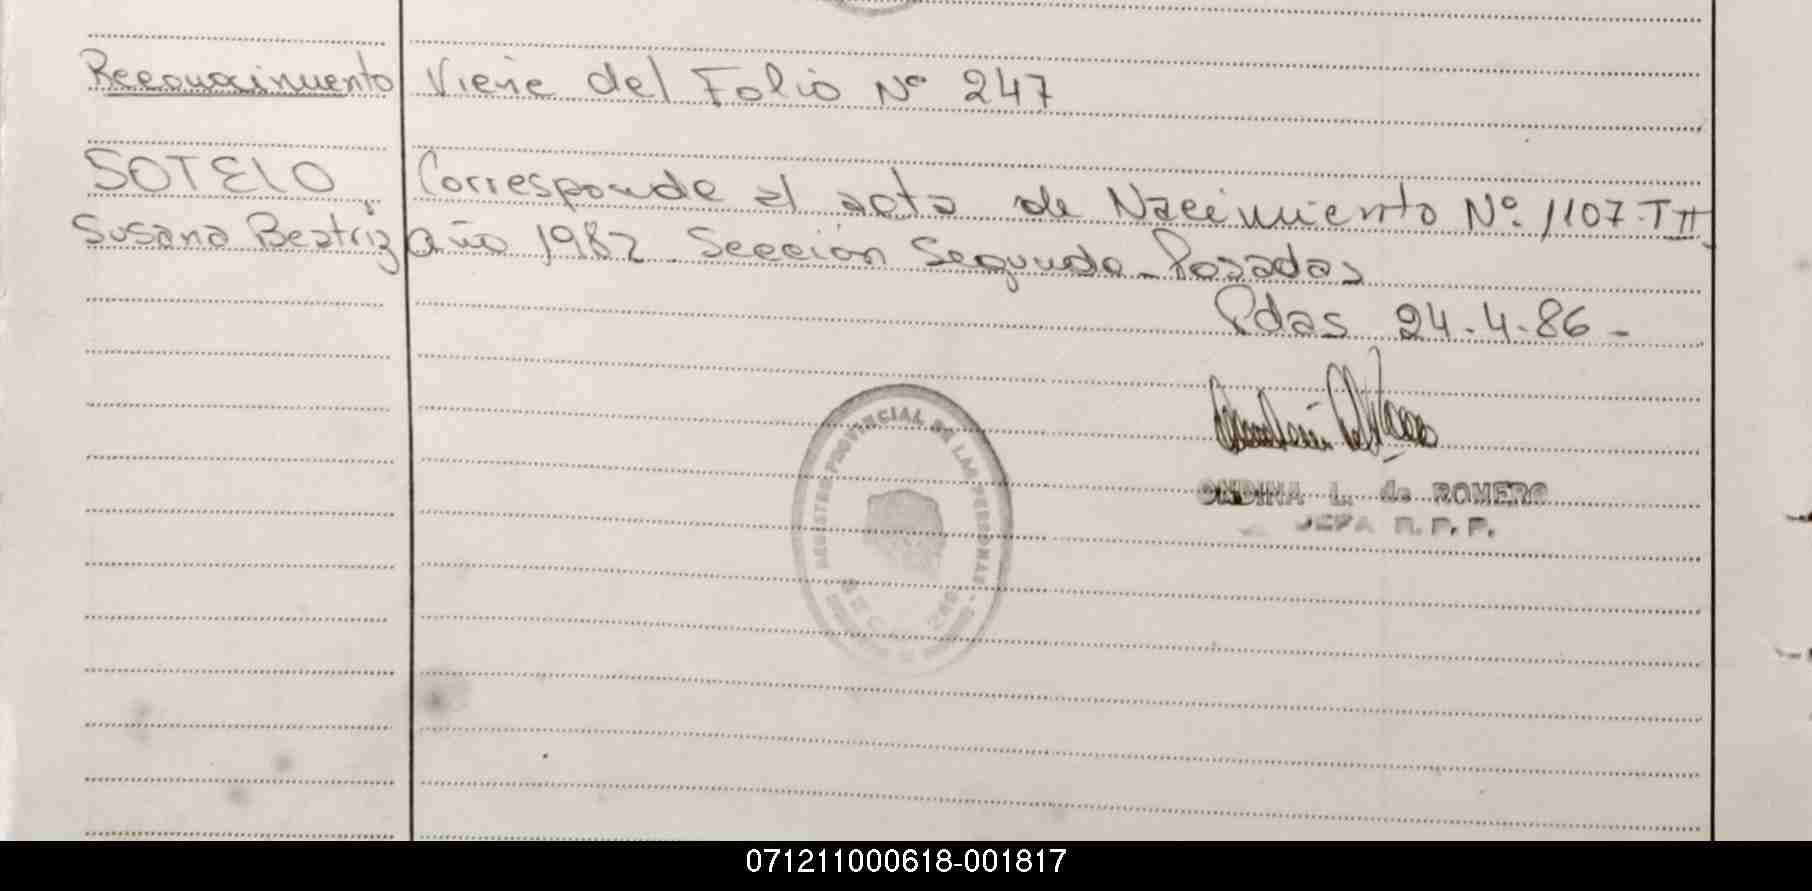 Reconocimiento
Viene del Folio Nº 247
SOTELO
Susana Beatriz
Corresponde al acta de Nacimiento Nº 1107-TII
año 1982. Sección Segunda - Posadas
Pdas 24-4-86-
REGISTRO PROVINCIAL DE LAS PERSONAS
ONDINA L. de ROMERO
JEFA R.P.P.
071211000618-001817